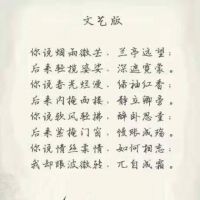 文艺版
你说烟雨微芒，兰亭远望；
后来轻揽婆娑，深遮霓裳。
你说春光烂漫，绿袖红香；
后来内掩西楼，静立卿旁。
你说软风轻拂，醉卧思量；
后来紧掩门窗，慢帐成殇。
你说情丝柔肠，如何相忘；
我却眼波微转，兀自成霜。